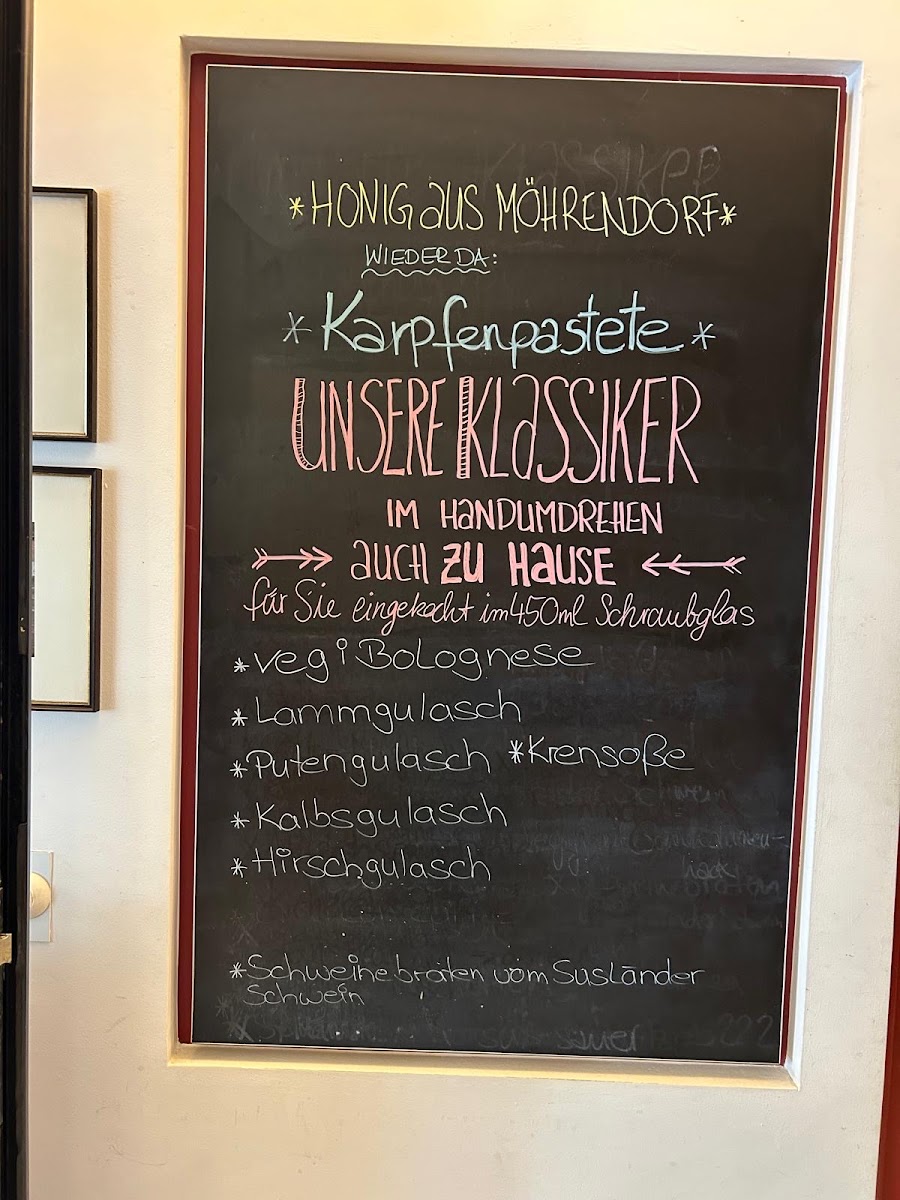 *HONIG aus MÖHRENDORF*
WIEDER DA:
*Karpfenpastete*
UNSERE KLASSIKER
IM HANDUMDREHEN
AUCH ZU HAUSE
für Sie eingekocht im 450ml Schraubglas
*vegi Bolognese
*Lammgulasch
*Putengulasch *Krensoße
*Kalbsgulasch
*Hirschgulasch
*Schweinebraten vom Susländer
Schwein